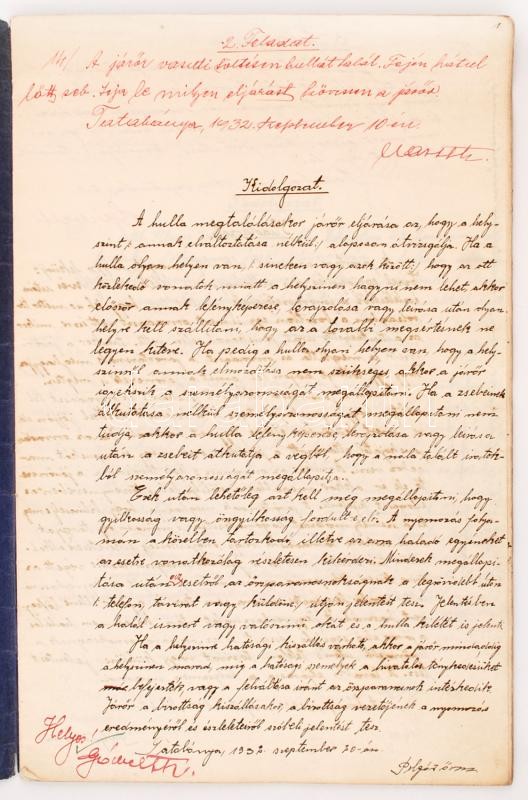 2. Feladat.
A járőr vasúti töltésen hullát talál. Fején hátul
lőtt seb. Írja le milyen eljárást követ a járőr.
Tatabánya, 1932. szeptember 10-én.
Kidolgozat.
A hulla megtalálásakor járőr eljárása az, hogy a hely-
szint /: annak elváltoztatása nélkül :/ alaposan átvizsgálja. Ha a
hulla olyan helyen van /: sineken vagy azok között :/ hogy az ott
közlekedő vonatok miatt a helyszinen hagyni nem lehet, akkor
először annak lefényképezése, lerajzolása vagy leirása után olyan
helyre kell szállitani, hogy az a további megsértésnek ne
legyen kitéve. Ha pedig a hulla olyan helyen van, hogy a hely-
szinről annak elmozditása nem szükséges akkor a járőr
igyekszik a személyazonosságát megállapitani. Ha a zsebeinek
átkutatása nélkül személyazonosságát megállapitani nem
tudja, akkor a hulla lefényképezése, lerajzolása vagy leirása
után a zsebeit átkutatja a végből, hogy a nála talált iratok-
ból személyazonosságát megállapitja.
Ezek után lehetőleg azt kell még megállapitani, hogy
gyilkosság vagy öngyilkosság fordult elő. A nyomozás folya-
mán a közelben tartózkodó, illetve az arra haladó egyéneket
az esetre vonatkozólag részletesen kikérdezi. Mindezek megállapi-
tása után az esetről az őrsparancsnokságnak a legrövidebb úton
/: telefon, távirat vagy küldönc :/ útján jelentést tesz. Jelentésben
a halál ismert vagy valószinű okát és a hulla kilétét is jelenti.
Ha a helyszinre hatósági kiszállás várható, akkor a járőr mindaddig
a helyszinen marad, mig a hatósági személyek a hivatalos ténykedésüket
befejezték, vagy a felváltása iránt az őrsparancsnok intézkedik.
Járőr a bizottság kiszállásakor a bizottság vezetőjének a nyomozás
eredményéről és észleleteiről szóbeli jelentést tesz.
Tatabánya, 1932. szeptember 20-án.
Helyes!